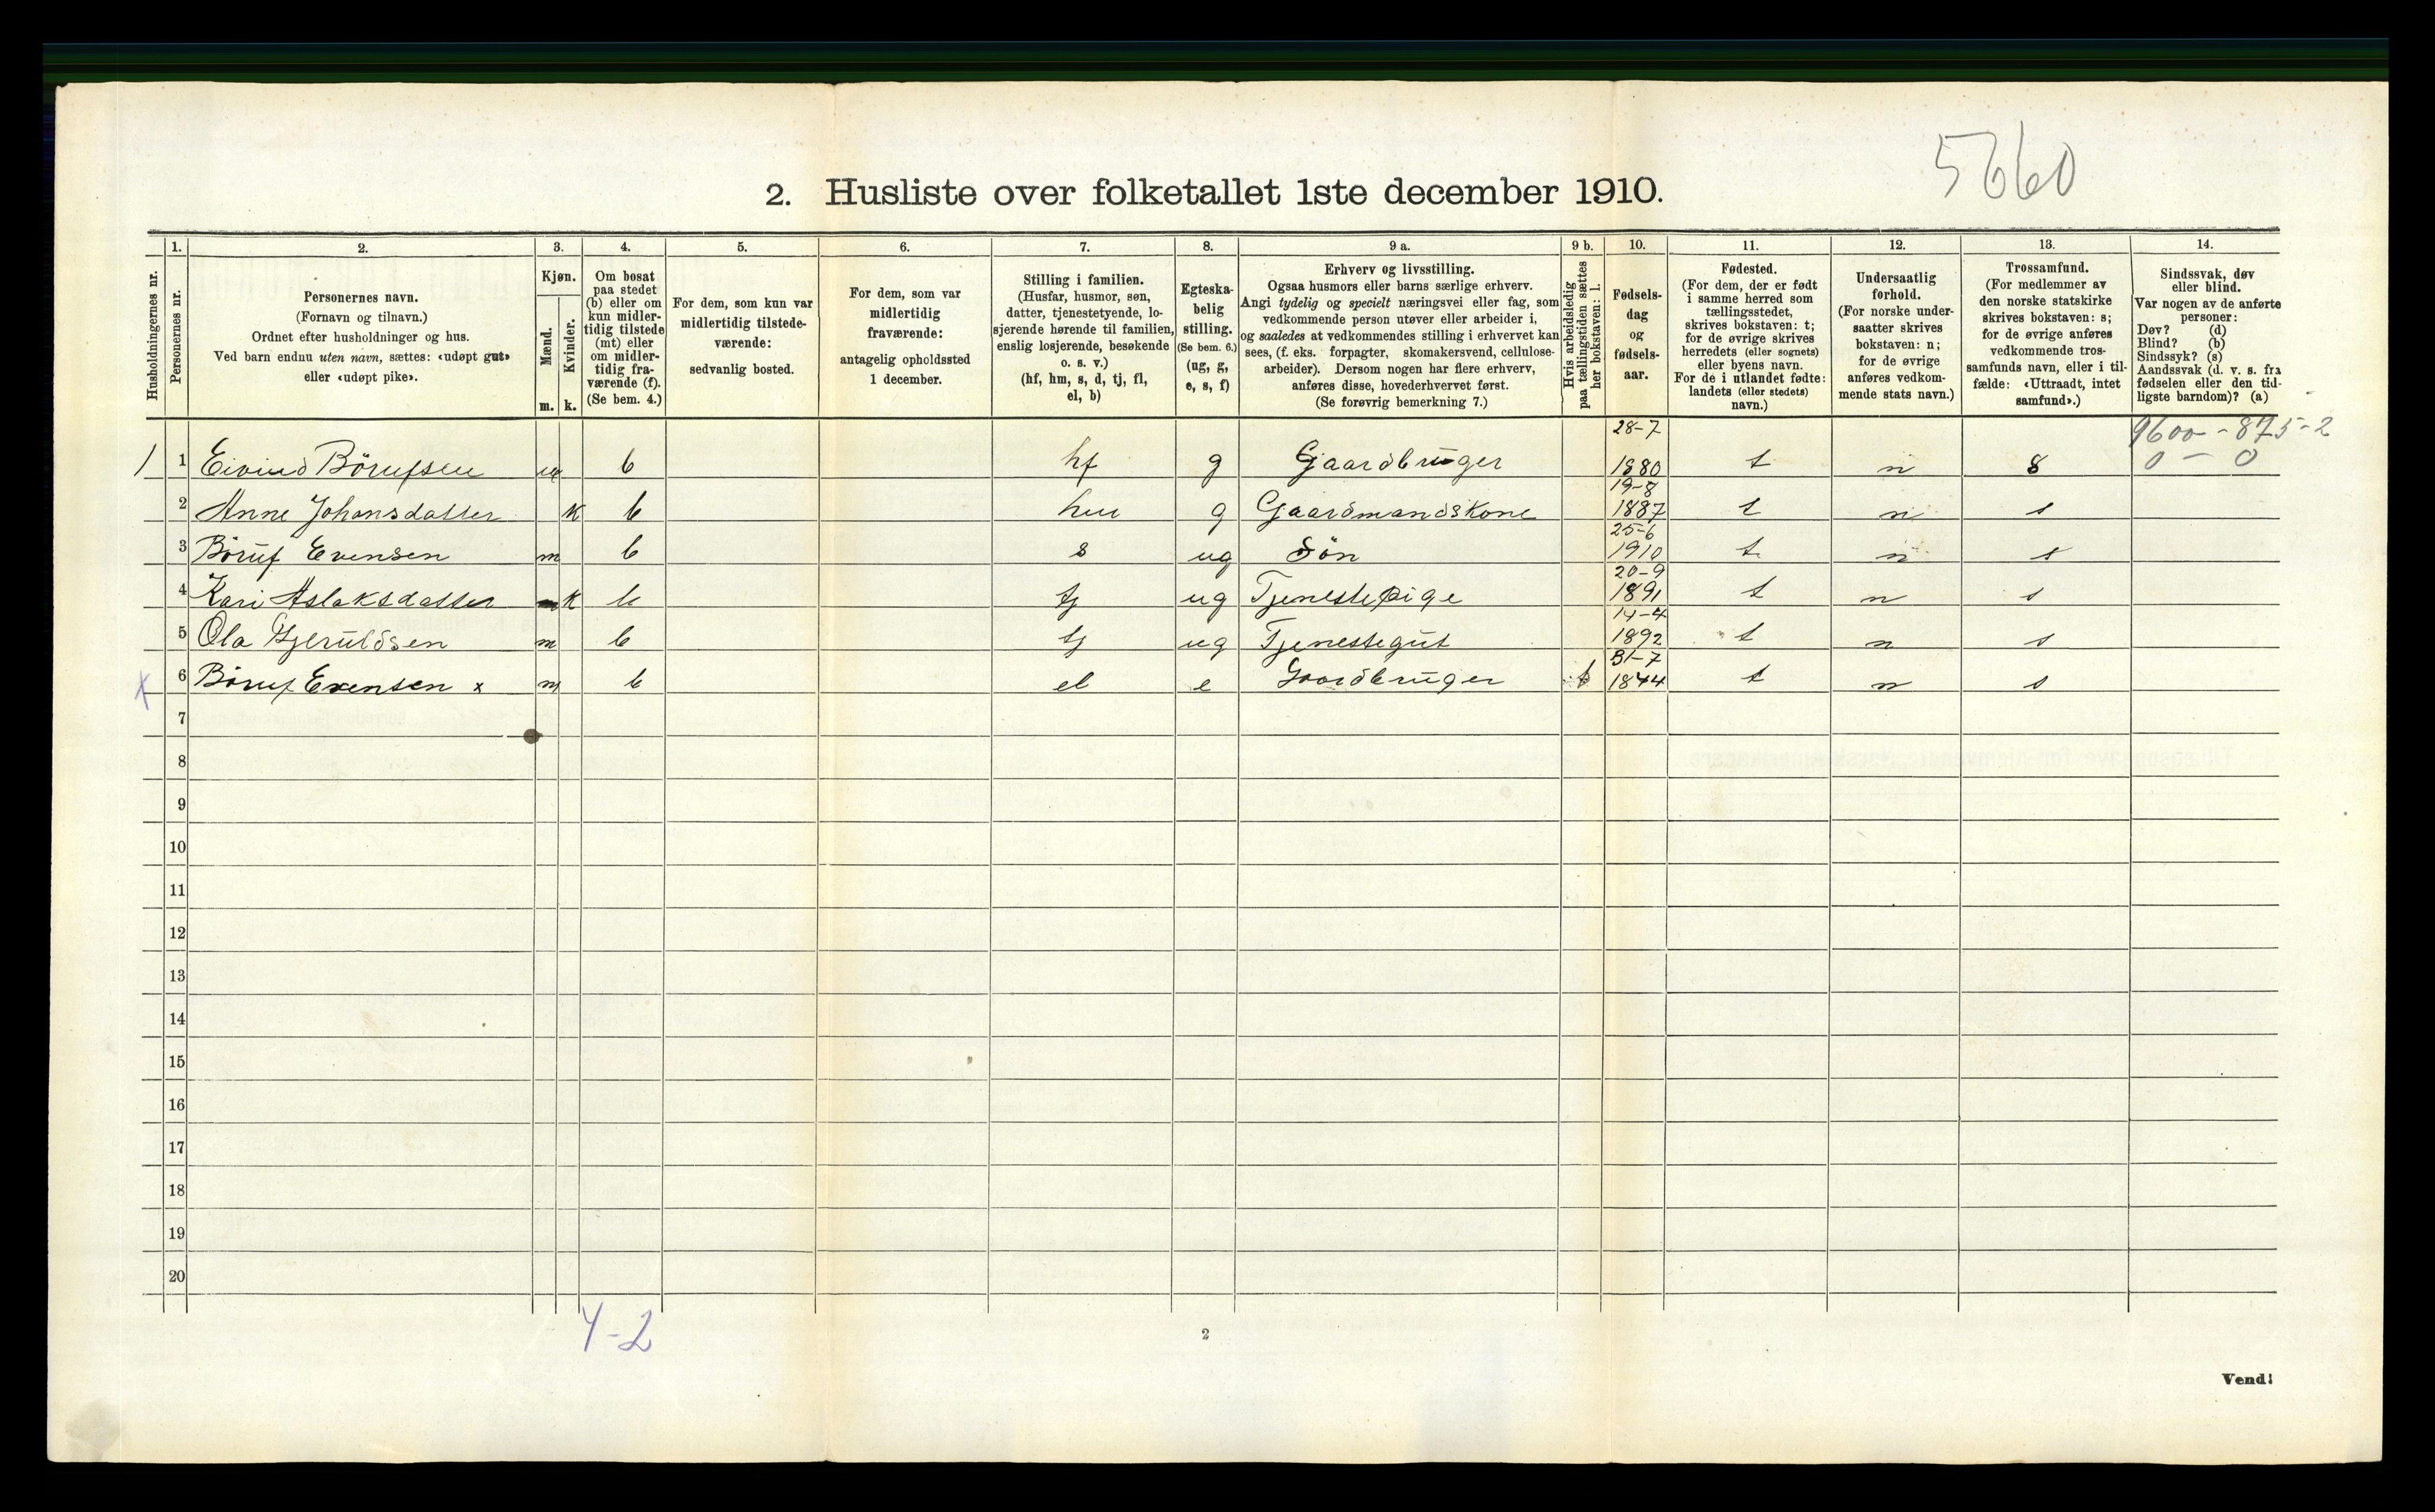 5660
2. Husliste over folketallet 1ste december 1910.
Husholdningernes nr.
1. Personernes nr.
2. Personernes navn. (Fornavn og tilnavn.) Ordnet efter husholdninger og hus. Ved barn endnu uten navn, sættes: «udøpt gut» eller «udøpt pike».
3. Kjøn. Mænd. m. Kvinder. k.
4. Om bosat paa stedet (b) eller om kun midlertidig tilstede (mt) eller om midlertidig fraværende (f). (Se bem. 4.)
5. For dem, som kun var midlertidig tilstedeværende: sedvanlig bosted.
6. For dem, som var midlertidig fraværende: antagelig opholdssted 1 december.
7. Stilling i familien. (Husfar, husmor, søn, datter, tjenestetyende, losjerende hørende til familien, enslig losjerende, besøkende o. s. v.) (hf, hm, s, d, tj, fl, el, b)
8. Egteskabelig stilling. (Se bem. 6.) (ug, g, e, s, f)
9 a. Erhverv og livsstilling. Ogsaa husmors eller barns særlige erhverv. Angi tydelig og specielt næringsvei eller fag, som vedkommende person utøver eller arbeider i, og saaledes at vedkommendes stilling i erhvervet kan sees, (f. eks. forpagter, skomakersvend, cellulosearbeider). Dersom nogen har flere erhverv, anføres disse, hovederhvervet først. (Se forøvrig bemerkning 7.)
9 b. Hvis arbeidsledig paa tællingstiden sættes her bokstaven: l.
10. Fødselsdag og fødselsaar.
11. Fødested. (For dem, der er født i samme herred som tællingsstedet, skrives bokstaven: t; for de øvrige skrives herredets (eller sognets) eller byens navn. For de i utlandet fødte: landets (eller stedets) navn.)
12. Undersaatlig forhold. (For norske undersaatter skrives bokstaven: n; for de øvrige anføres vedkommende stats navn.)
13. Trossamfund. (For medlemmer av den norske statskirke skrives bokstaven: s; for de øvrige anføres vedkommende trossamfunds navn, eller i tilfælde: «Uttraadt, intet samfund».)
14. Sindssvak, døv eller blind. Var nogen av de anførte personer: Døv? (d) Blind? (b) Sindssyk? (s) Aandssvak (d. v. s. fra fødselen eller den tidligste barndom)? (a)
9600 - 875 - 2
0 - 0
1 1 Eivind Börufsen m b hf g Gaardbruger 28-7 1880 t n s
2 Anne Johansdatter k b hm g Gaardmandskone 19-8 1887 t n s
3 Böruf Evensen m b s ug Sön 25-6 1910 t n s
4 Kari Aslaksdatter k b tj ug Tjenestepige 20-9 1891 t n s
5 Ola Gjeruldsen m b tj ug Tjenestegut 14-4 1892 t n s
x 6 Böruf Evensen x m b el e Gaardbruger 31-7 1844 t n s
7
8
9
10
11
12
13
14
15
16
17
18
19
20
4-2
2
Vend!